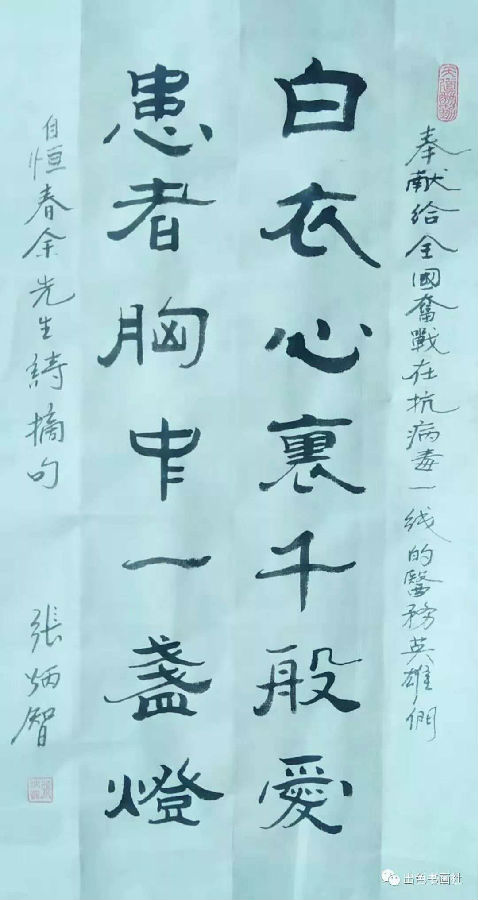 奉献给全國奮戰在抗病毒一线的醫務英雄們
白衣心裏千般愛
患者胸中一盞燈
自恒春余先生詩摘句
張炳智
出色书画社